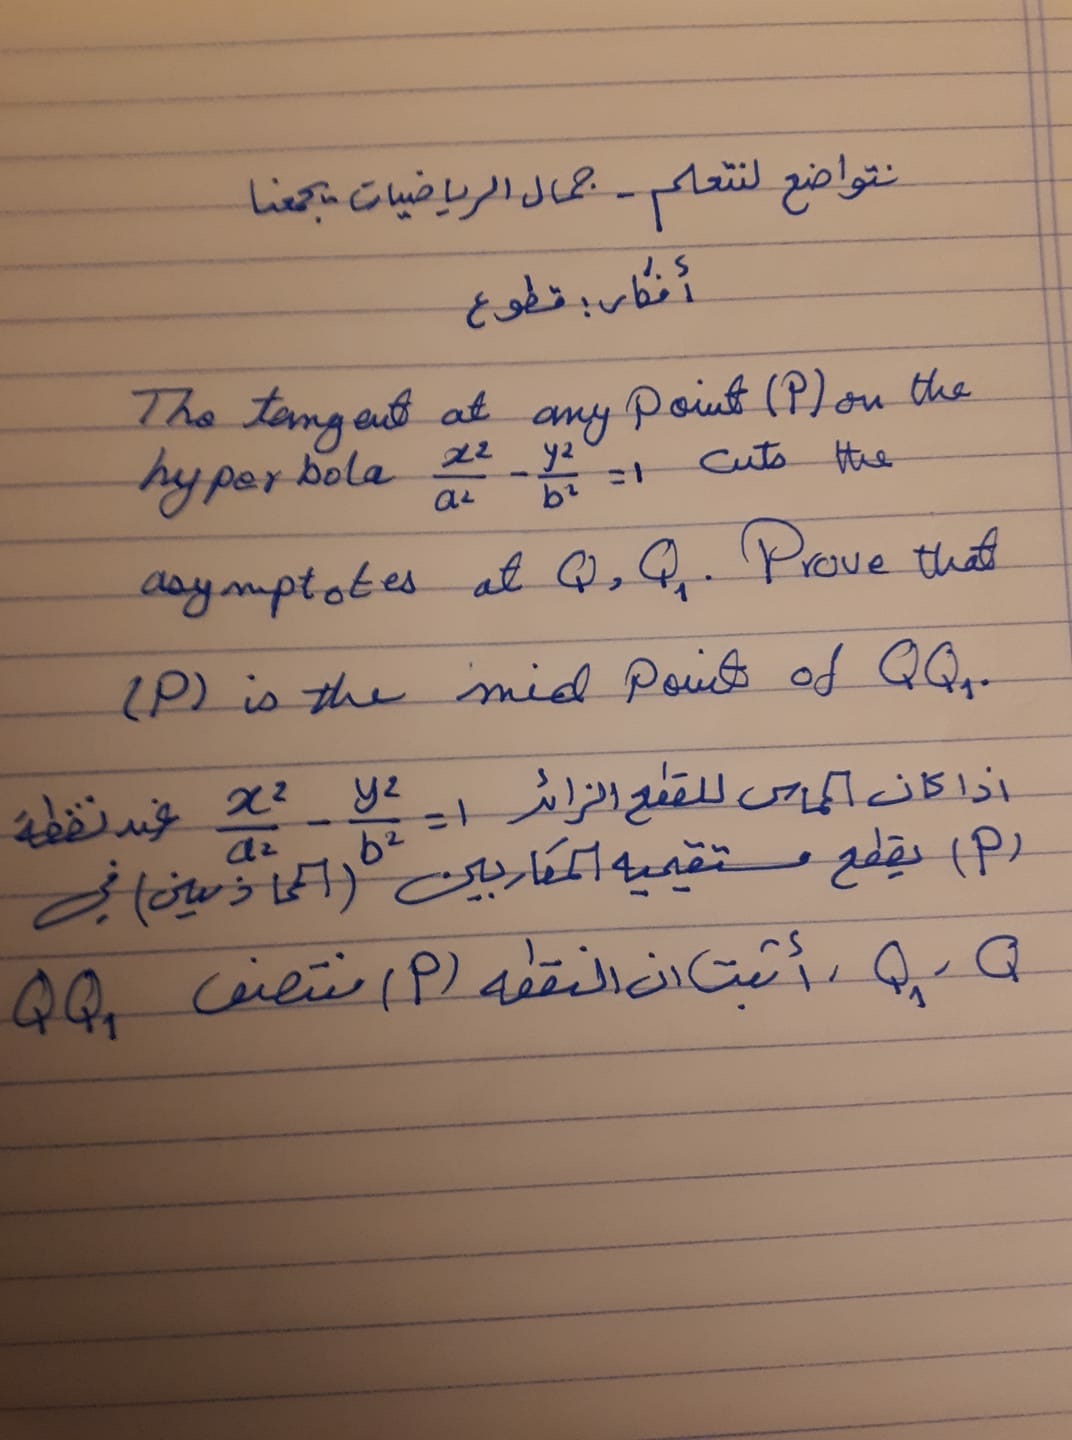 نتواضع لنتعلم - جمال الرياضيات يجمعنا
أفكار: قطوع
The tangent at any point (P) on the
hyperbola x²/a² - y²/b² = 1 cuts the
asymptotes at Q, Q₁. Prove that
(P) is the mid point of QQ₁.
اذا كان المماس للقطع الزائد x²/a² - y²/b² = 1 عند نقطة
(P) يقطع مستقيميه المقاربين (المحاذيين) في
Q، Q₁، أثبت ان النقطه (P) منتصف QQ₁